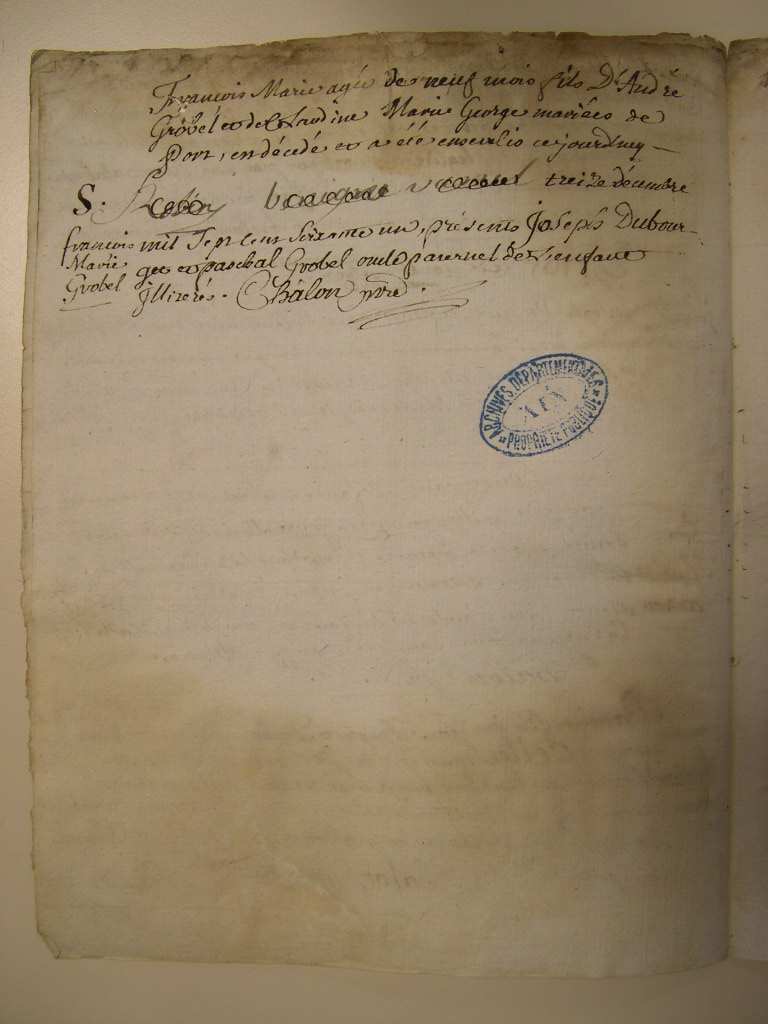 François Marie agé de neuf mois fils D'André
Grobel et de Claudine Marie George mariés de
Port, en décédé et a été enseveli ce jourd'huy
S. treize décembre
françois mil Sept cent Soixante un, présents Joseph Dubour-
Marie get et pascbal Grobel oncle paternel de l'enfant
Grobel Illiterés. Chalon ptre.
ARCHIVES DÉPARTEMENTALES
AIN
PROPRIÉTÉ PUBLIQUE